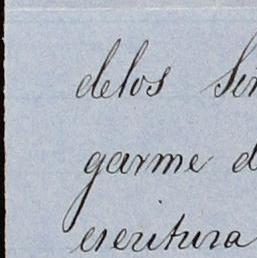 delos Señ
garme d
escritura